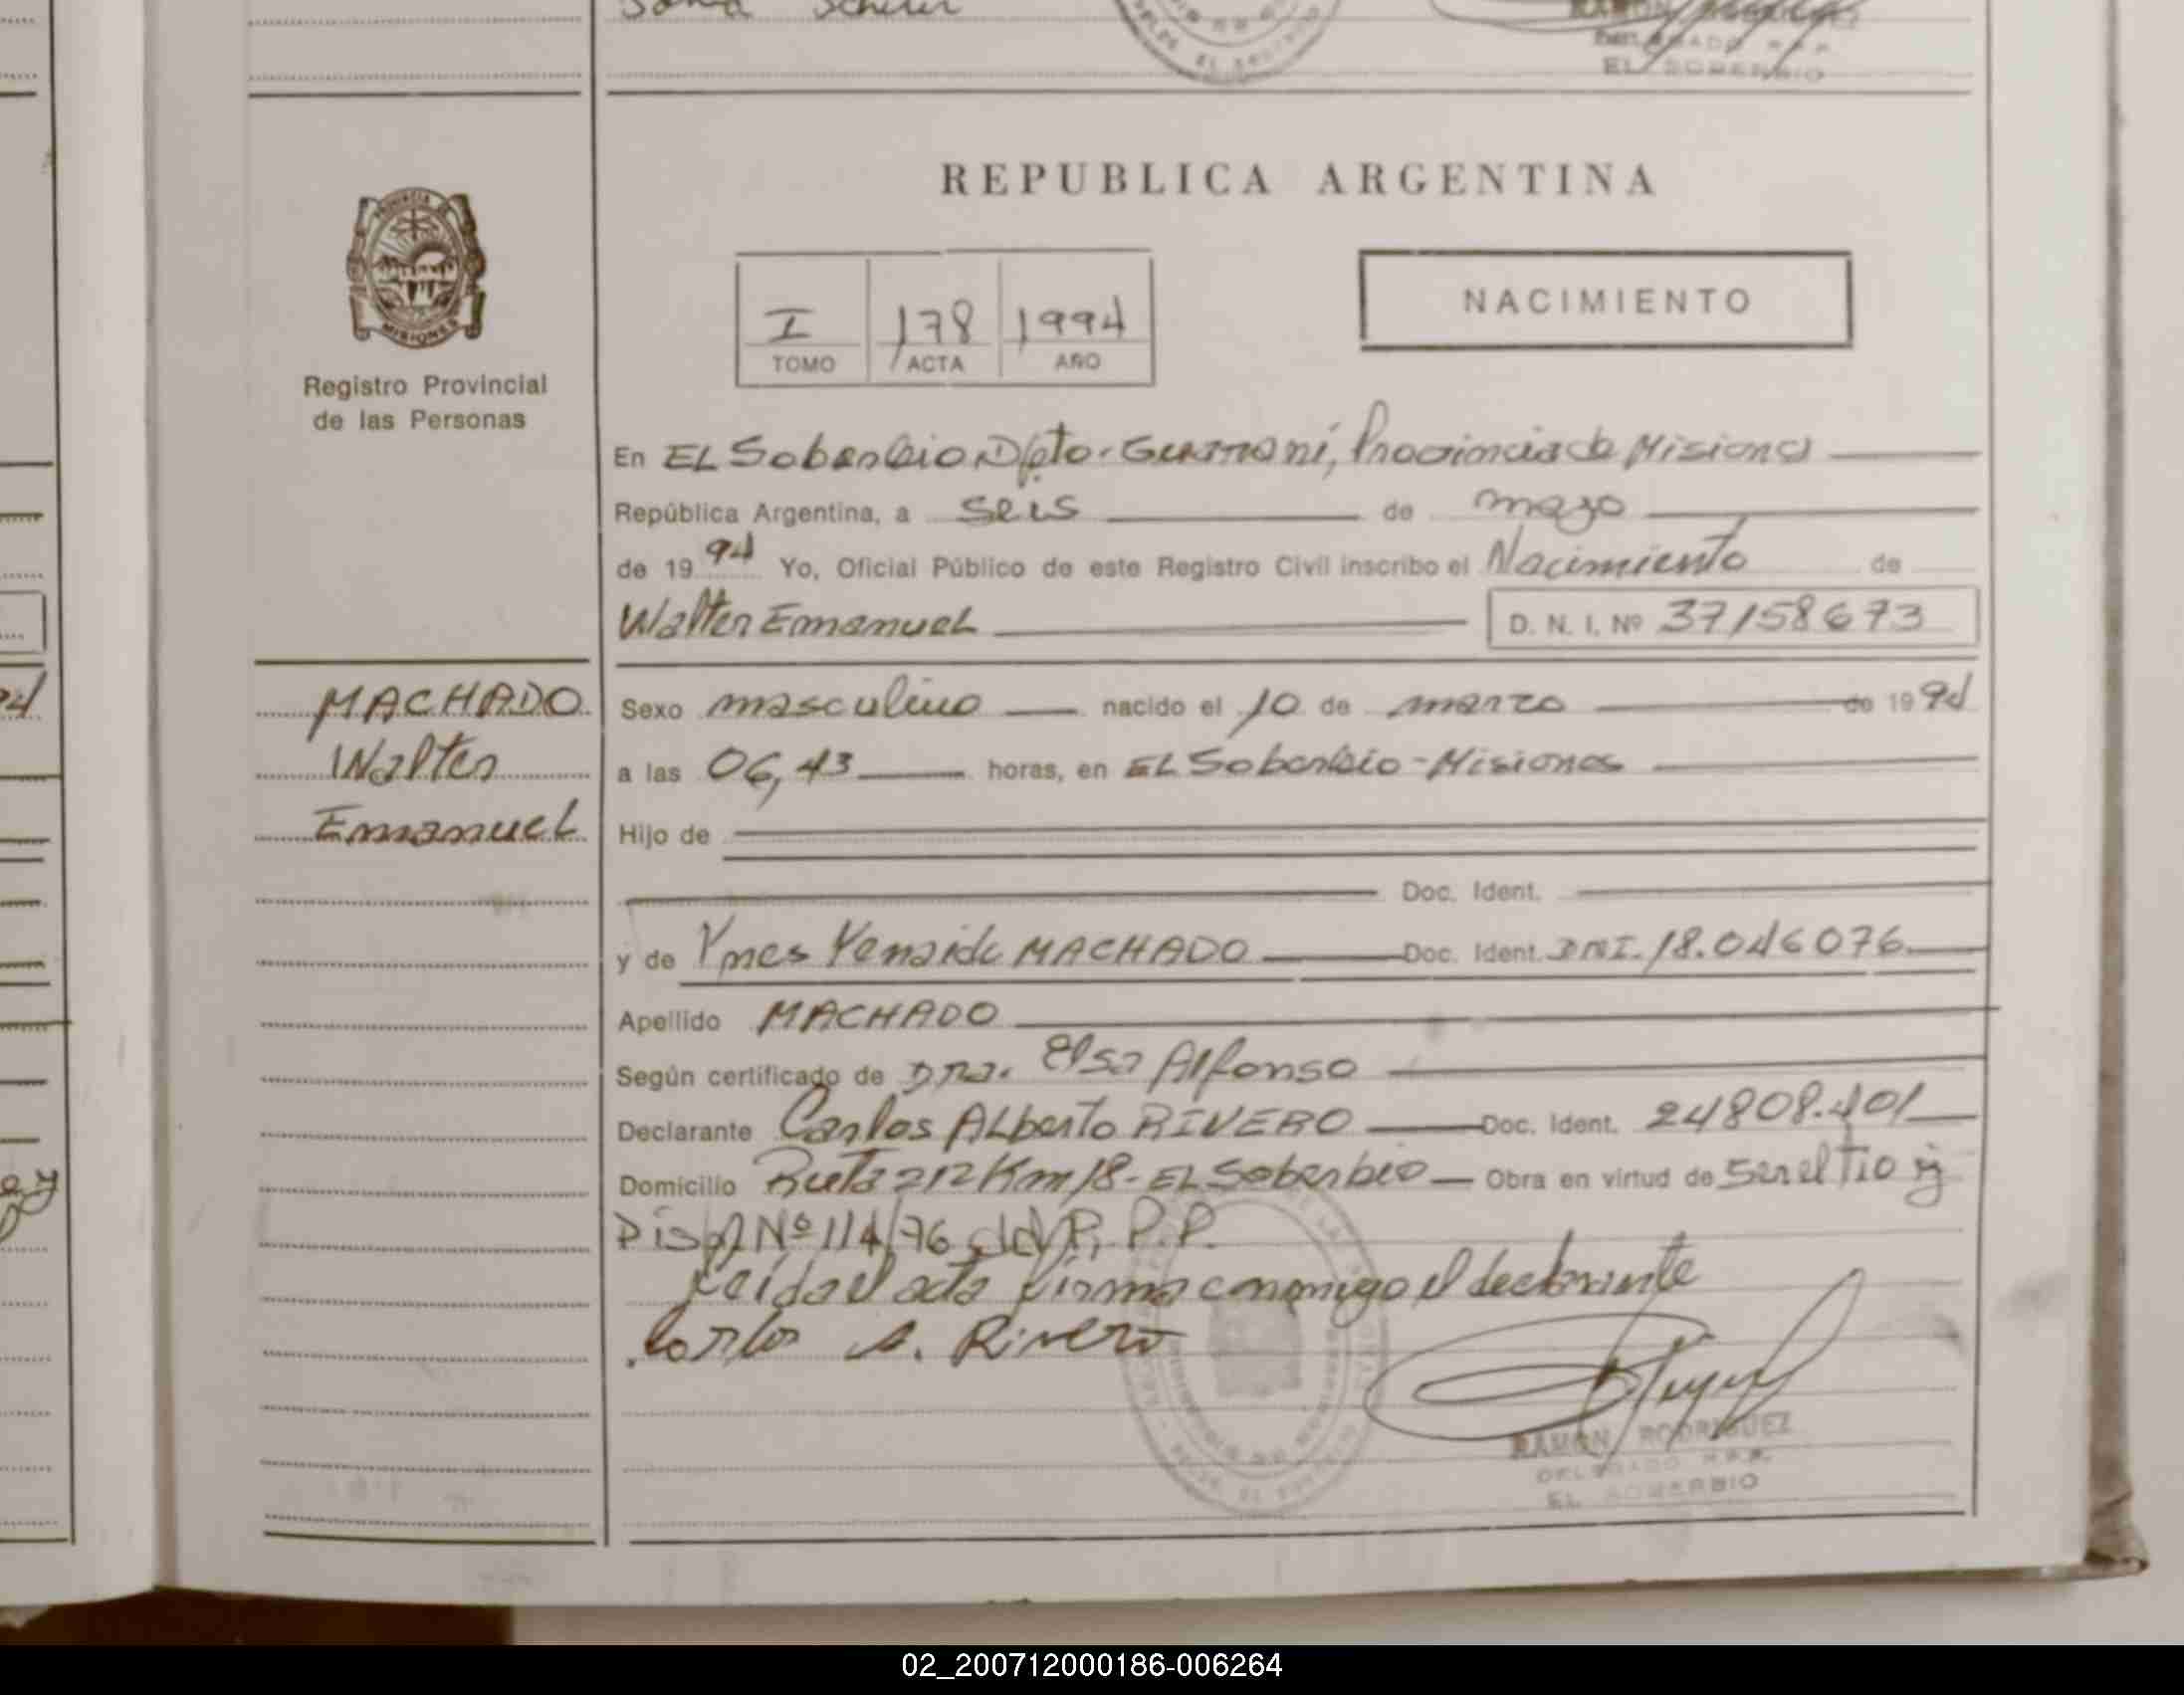 Sonia Scherer
EL SOBERBIO
REPUBLICA ARGENTINA
PROVINCIA DE
MISIONES
Registro Provincial
de las Personas
I 178 1994
TOMO ACTA AÑO
NACIMIENTO
En EL Soberbio Dpto. Guarani, Provincia de Misiones
República Argentina, a seis de mayo
de 1994 Yo, Oficial Público de este Registro Civil inscribo el Nacimiento de
Walter Emanuel D. N. I. Nº 37158673
MACHADO
Walter
Emanuel
Sexo masculino nacido el 10 de marzo de 1994
a las 06,43 horas, en EL Soberbio - Misiones
Hijo de
Doc. Ident.
y de Ynes Zenaide MACHADO Doc. Ident. DNI. 18.046076
Apellido MACHADO
Según certificado de Dra. Elsa Alfonso
Declarante Carlos ALberto RIVERO Doc. Ident. 24808.401
Domicilio Ruta 212 Km 18 - EL Soberbio Obra en virtud de ser el Tio y
Nº 114/76 del R. P. P.
Leida el acta firma conmigo el declarante
Carlos A. Rivero
RAMON RODRIGUEZ
DELEGADO R.P.P.
EL SOBERBIO
02_200712000186-006264